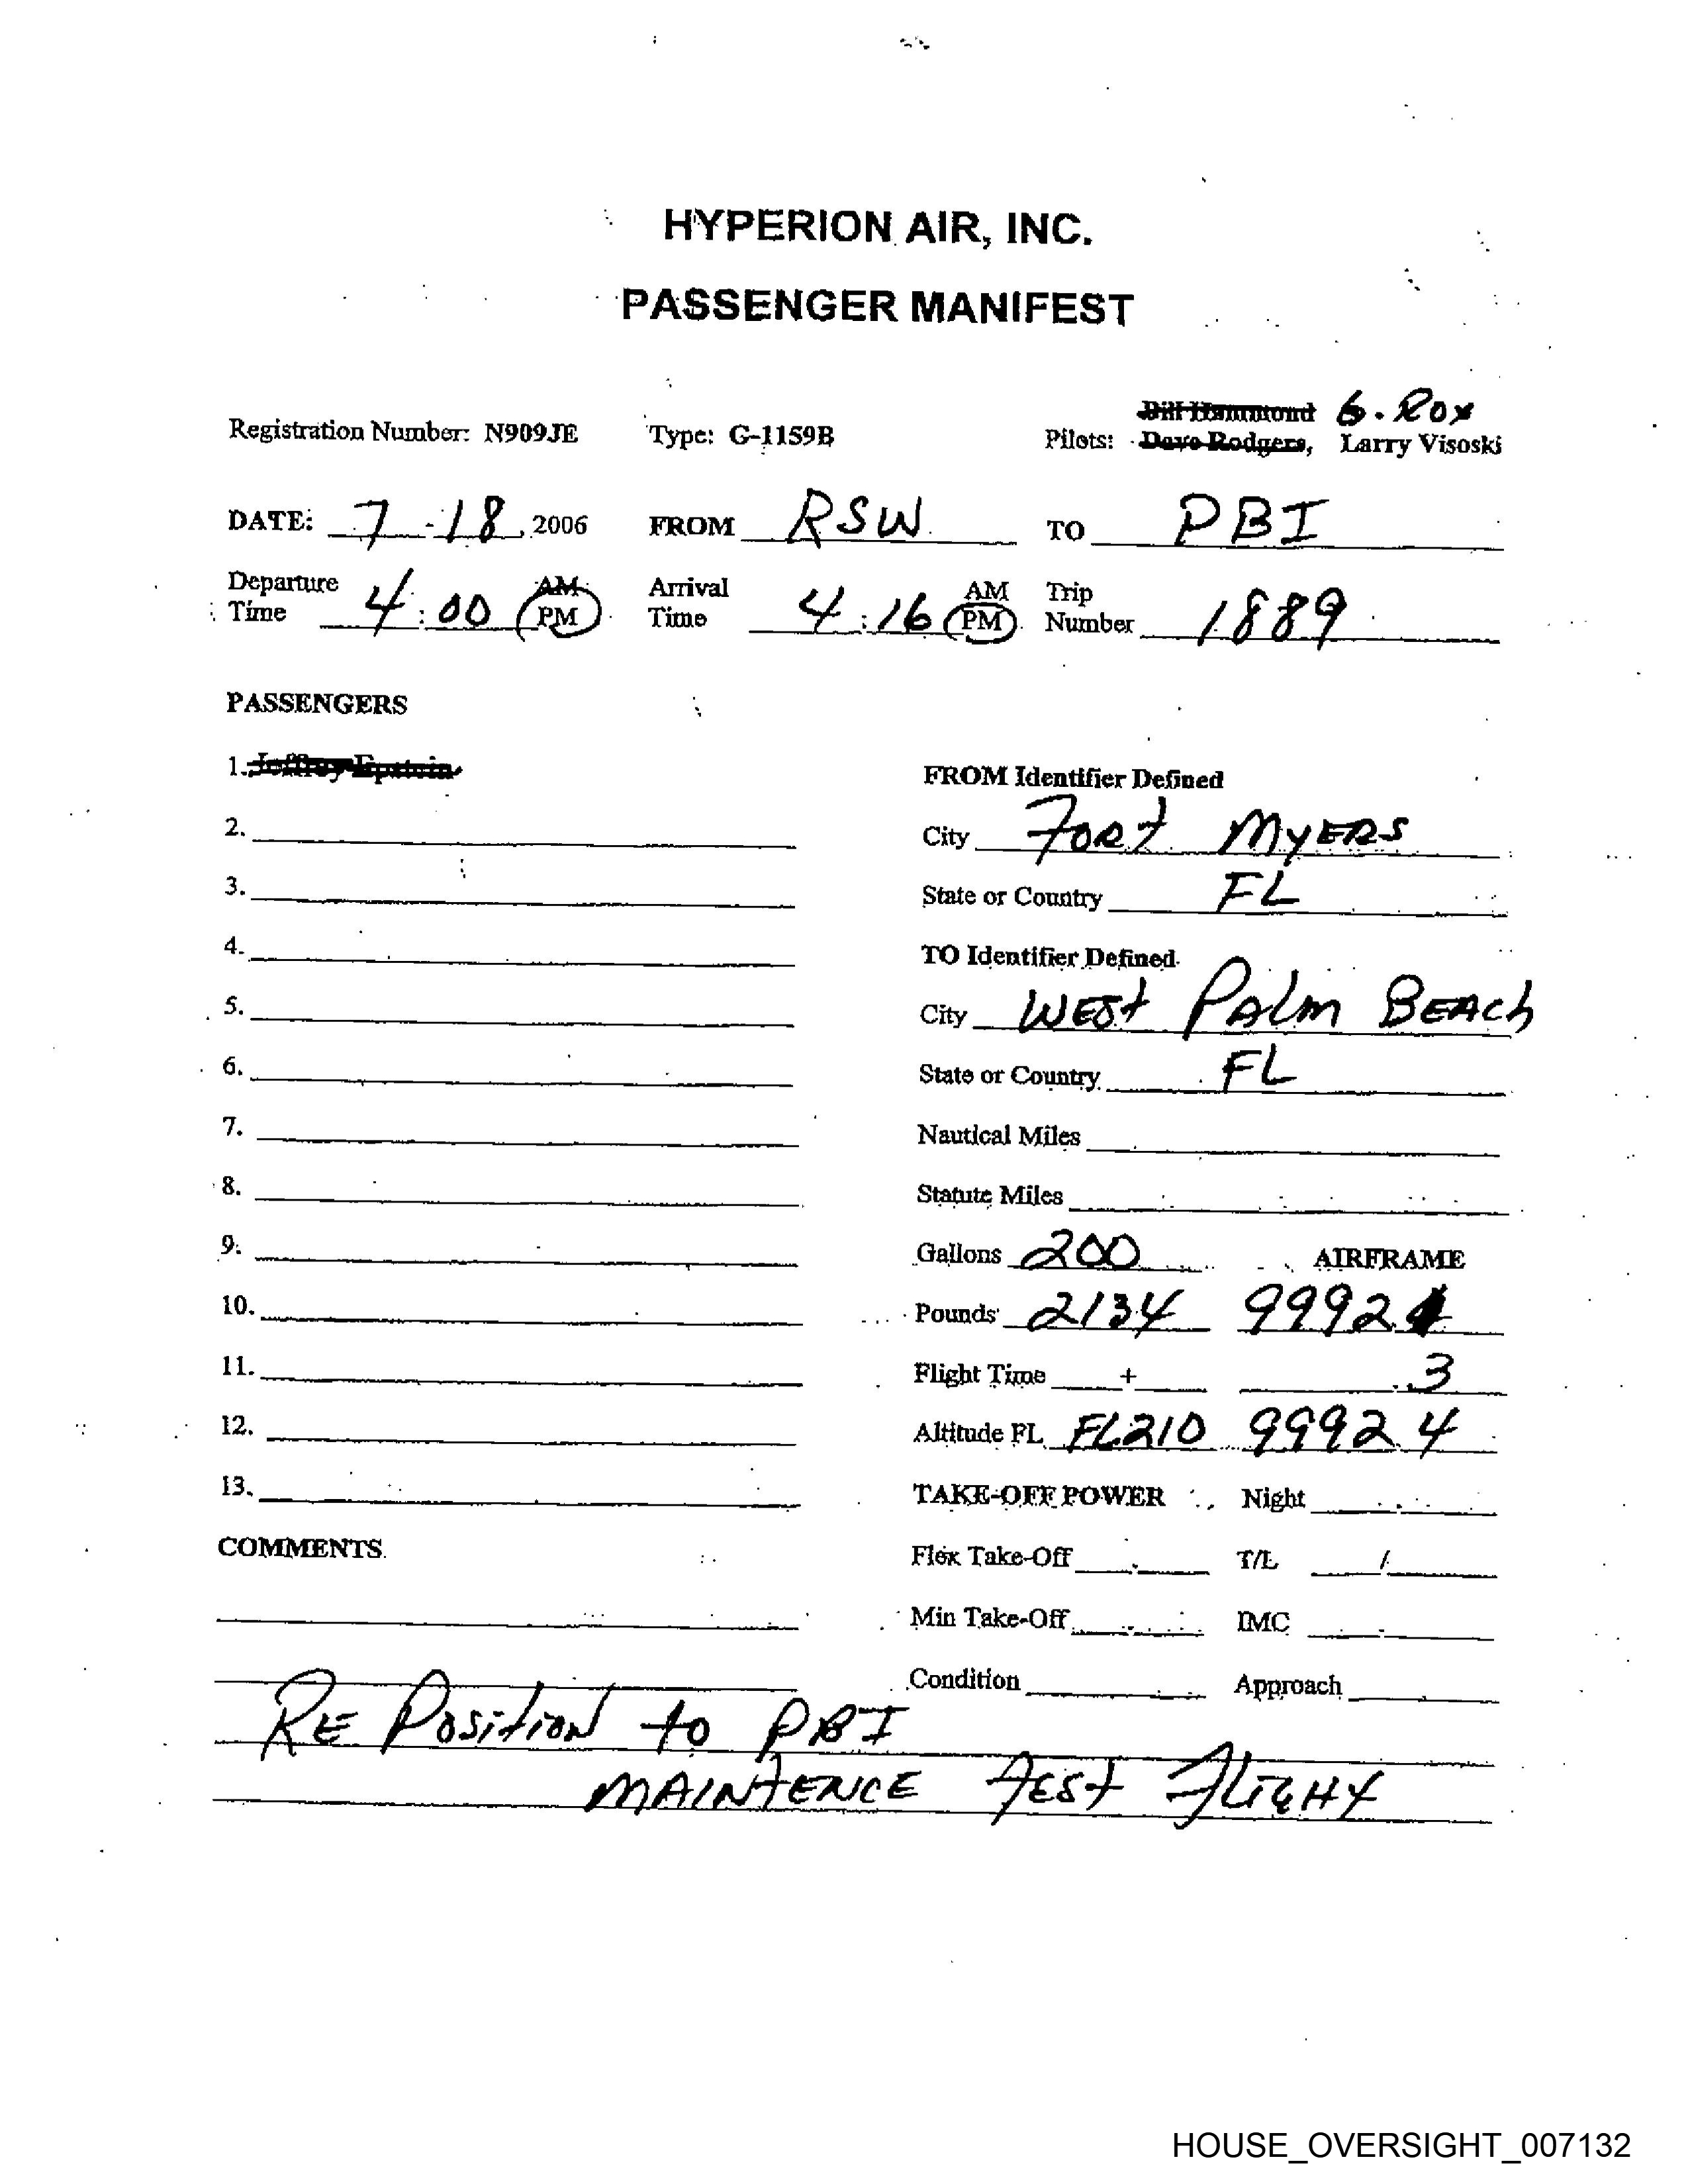 HYPERION AIR, INC.
PASSENGER MANIFEST
Bill Hammond G. Rox
Registration Number: N909JE Type: G-1159B Pilots: Dave Rodgers, Larry Visoski
DATE: 7-18, 2006 FROM RSW TO PBI
Departure Time 4:00 AM PM Arrival Time 4:16 AM PM Trip Number 1889
PASSENGERS
1. Jeffrey Epstein
2.
3.
4.
5.
6.
7.
8.
9.
10.
11.
12.
13.
FROM Identifier Defined
City FORT MYERS
State or Country FL
TO Identifier Defined
City WEST PALM BEACH
State or Country FL
Nautical Miles
Statute Miles
Gallons 200 AIRFRAME
Pounds 2134 9992
Flight Time + .3
Altitude FL FL210 9992.4
TAKE-OFF POWER Night
Flex Take-Off T/L /
Min Take-Off IMC
Condition Approach
COMMENTS
RE POSITION to PBI
MAINTENCE TEST FLIGHT
HOUSE_OVERSIGHT_007132